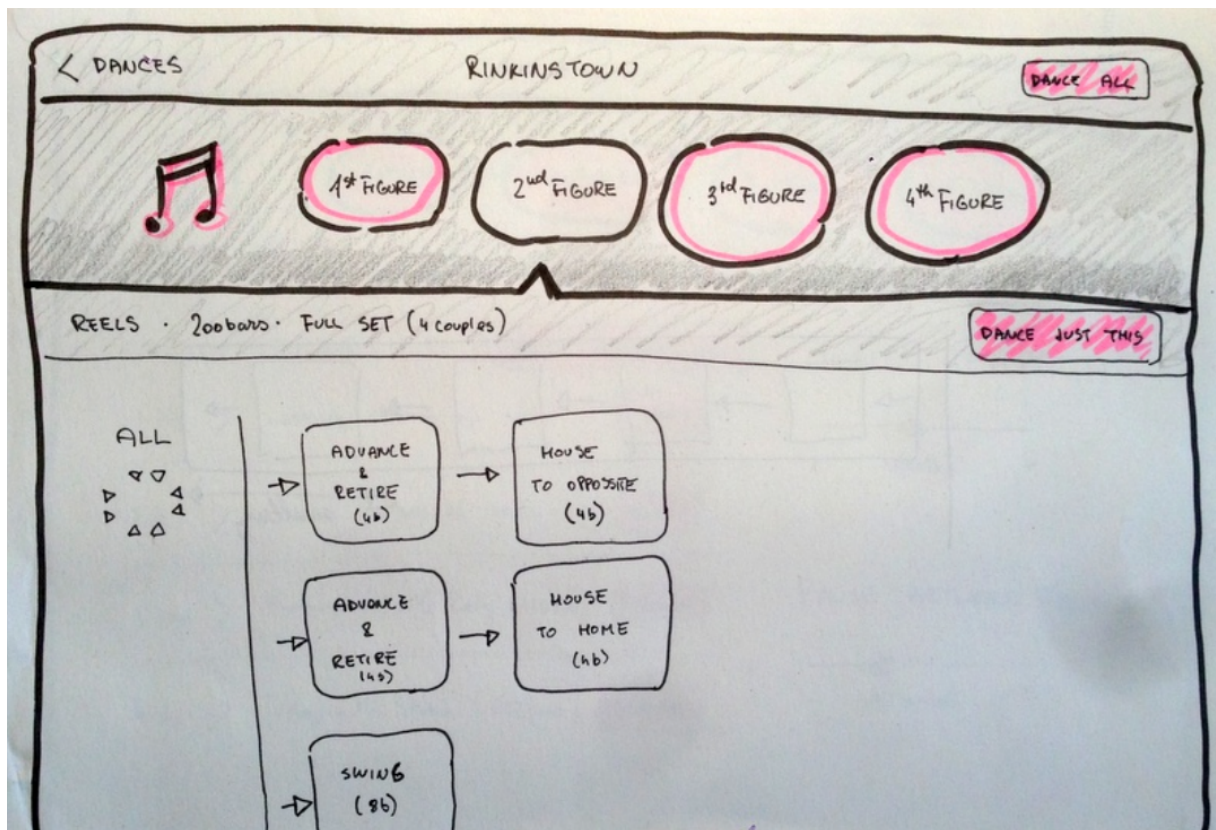 < DANCES
RINKINSTOWN
DANCE ALL
1st FIGURE
2nd FIGURE
3rd FIGURE
4th FIGURE
REELS · 200bars · FULL SET (4 couples)
DANCE JUST THIS
ALL
ADVANCE
&
RETIRE
(4b)
HOUSE
TO OPPOSITE
(4b)
ADVANCE
&
RETIRE
(4b)
HOUSE
TO HOME
(4b)
SWING
(8b)